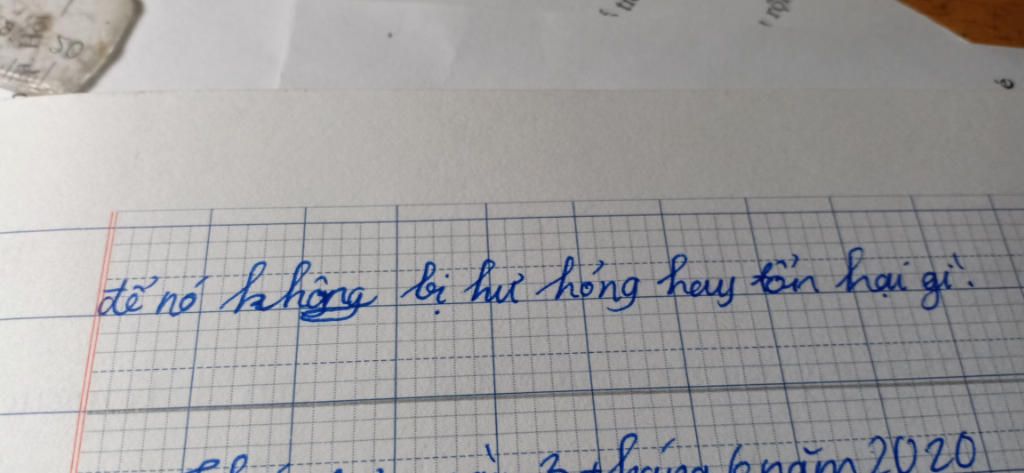 để nó không bị hư hỏng hay tổn hại gì.
3 tháng 6 năm 2020